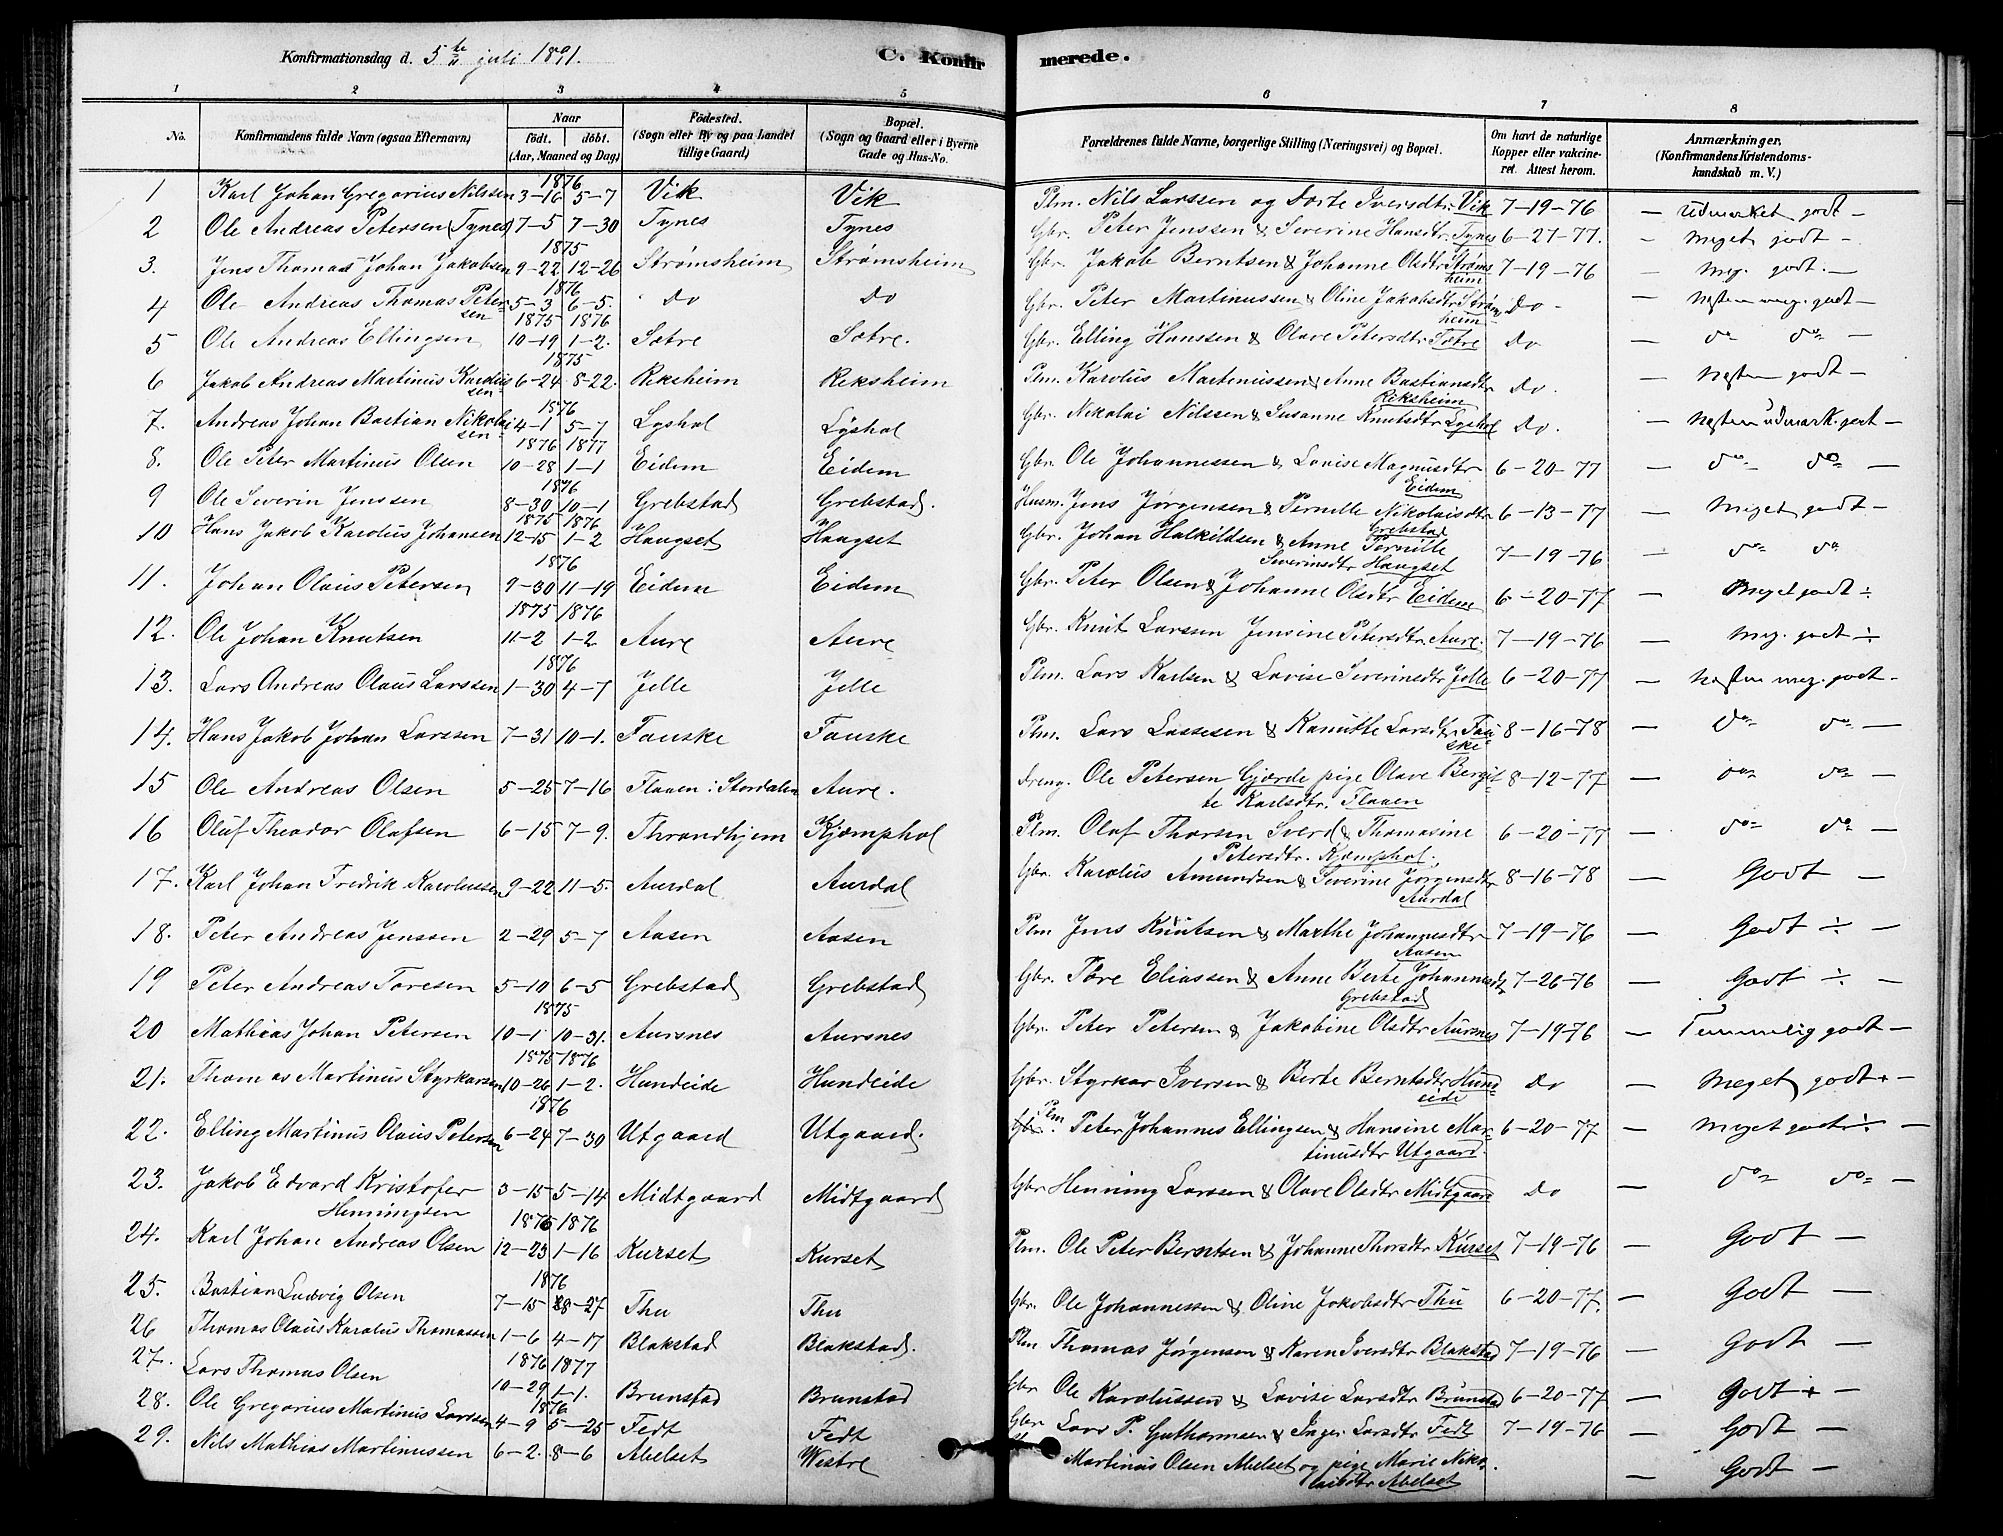 Konfirmationsdag d. 5te juli 1891. C. Konfirmerede.
1 2 3 4 5 6 7 8
No. Konfirmandens fulde Navn (ogsaa Efternavn) Naar født. døbt. (Aar, Maaned og Dag) Fødested. (Sogn eller By og paa Landet tillige Gaard) Bopæl. (Sogn og Gaard eller i Byerne Gade og Hus-No. Forældrenes fulde Navne, borgerlige Stilling (Næringsvei) og Bopæl. Om havt de naturlige Kopper eller vakcineret. Attest herom. Anmærkninger. (Konfirmandens Kristendomskundskab m. V.)
1876
1 Karl Johan Gregorius Nilssen 3-16 5-7 Vik Vik Plm. Nils Larssen og Dorte Iversdtr. Vik 7-19-76 — Udmærket godt —
2 Ole Andreas Petersen (Tynes) 7-5 7-30 Tynes Tynes Gbr. Peter Jenssen & Severine Hansdtr. Tynes 6-27-77. — Meget godt —
1875
3. Jens Thomas Johan Jakobsen 9-22 12-26 Strømsheim Strømsheim Gbr. Jakob Berntsen & Johanne Olsdtr Strømsheim 7-19-76 — Meg. godt. —
1876
4 Ole Andreas Thomas Petersen 5-3 6-5. Do Do Gbr. Peter Martinussen & Oline Jakobsdtr Strømheim Do — Næsten meg. godt —
1875 1876
5 Ole Andreas Ellingsen 10-19 1-2. Sætre Sætre. Gbr. Elling Hanssen & Olave Petersdtr Sætre Do — do do —
1875
6 Jakob Andreas Martinus Karolussen 6-24 8-22. Reksheim Reksheim Plm. Karolus Martinussen & Anne Bastiansdtr Reksheim Do. — Næsten godt —
1876
7. Andreas Johan Bastian Nikolaisen 4-1 5-7 Lyshol Lyshol Gbr. Nikolai Nilssen & Susanne Knutsdtr Lyshol Do. — Næsten udmærk. godt —
1876 1877
8. Ole Peter Martinus Olsen 10-28 1-1 Eidem Eidem Gbr. Ole Johannessen & Lovise Magnusdtr Eidem 6-20-77 — do do —
1876
9 Ole Severin Jenssen 8-30 10-1 Grebstad Grebstad. Husm. Jens Jørgensen & Pernille Nikolaisdtr Grebstad 6-13-77 — Meget godt —
1875 1876
10 Hans Jakob Karolus Johansen 12-15 1-2 Haugset Haugset Gbr. Johan Halkildsen & Anne Pernille Severinsdtr Haugset 7-19-76 — do do
1876
11. Johan Olaus Petersen 9-30 11-19 Eidem Eidem Gbr. Peter Olsen & Johanne Olsdtr Eidem 6-20-77 — Meget godt ÷
1875 1876
12. Ole Johan Knutsen 11-2 1-2 Aure Aure Gbr. Knut Larssen Jensine Petersdtr Aure. 7-19-76 — Meg. godt ÷
1876
13. Lars Andreas Olaus Larssen 1-30 4-7 Jelle Jelle Plm. Lars Karlsen & Lovise Severinsdtr Jelle 6-20-77 — Næsten meg. godt —
14. Hans Jakob Johan Larssen 7-31 10-1. Fauske Fauske Plm. Lars Lassesen & Kanutte Larsdtr Fauske 8-16-78 — do do —
15 Ole Andreas Olsen 5-25 7-16 Flaaen i Stordalen Aure. Dreng. Ole Petersen Gjærde pige Olave Bergitte Karlsdtr. Flaaen 8-12-77 — do do —
16 Oluf Theodor Olafsen 6-15 7-9. Throndhjem Kjæmphol Plm. Olaf Thorsen Sverd & Thomasine Petersdtr. Kjæmphol. 6-20-77 — do do —
17. Karl Johan Fredrik Karolussen 9-22 11-5. Aurdal Aurdal Gbr. Karolus Amundsen & Severine Jørgensdtr Aurdal 8-16-78 — Godt —
18. Peter Andreas Jenssen 2-29 5-7 Aasen Aasen Plm Jens Knutsen & Marthe Johannesdtr Aasen 7-19-76 — Godt ÷ —
19 Peter Andreas Toresen 5-10 6-5 Grebstad Grebstad Gbr. Tore Eliassen & Anne Berte Johannesdtr Grebstad 7-26-76 — Godt ÷ —
1875
20 Mathias Johan Petersen 10-1 10-31. Aursnes Aursnes Gbr. Peter Petersen & Jakobine Olsdtr Aursnes 7-19-76 — Temmelig godt —
1875 1876
21. Thomas Martinus Styrkarsen 10-26 1-2. Hundeide Hundeide Gbr. Styrkar Iversen & Berte Berntsdtr Hundeide Do — Meget godt + —
1876
22. Elling Martinus Olaus Petersen 6-24 7-30 Utgaard Utgaard. Plm. Peter Johannes Ellingsen & Hansine Martinusdtr Utgaard. 6-20-77 — Meget godt ÷ —
23. Jakob Edvard Kristofer Henningsen 3-15 5-14 Midtgaard Midtgaard Gbr Henning Larssen & Olave Olsdtr Midtgaard Do — do do —
1875 1876
24. Karl Johan Andreas Olsen 12-23 1-16 Kurset Kurset Plm. Ole Peter Berntsen & Johanne Thorsdtr Kurset 7-19-76 — Godt —
1876
25. Bastian Ludvig Olsen 7-15 8-27 Thu Thu Gbr. Ole Johannessen & Oline Jakobsdtr Thu 6-20-77. — Godt —
26 Thomas Olaus Karolus Thomassen 1-6 4-17 Blakstad Blakstad. Plm Thomas Jørgensen & Karen Iversdtr Blakstad 7-19-76 — Godt —
1876 1877
27. Lars Thomas Olsen 10-29 1-1. Brunstad Brunstad Gbr Ole Karolussen & Lovise Larsdtr Brunstad 6-20-77 — Godt + —
1876
28. Ole Gregorius Martinus Larssen 4-9 5-25 Fedt Fedt Gbr Lars P. Guthormsen & Inger Larsdtr Fedt 7-19-76 — Godt —
29. Nils Mathias Martinussen 6-2. 8-6 Abelset Westre Martinus Olsen Abelset og pige Marie Nikolaisdtr Abelset — Godt —